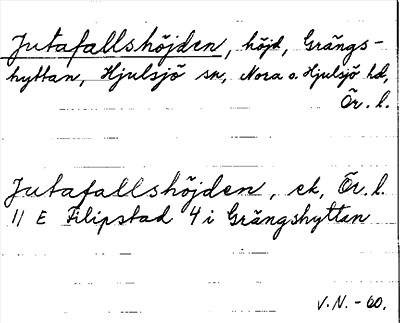 Jutafallshöjden, höjd, Grängs-
hyttan, Hjulsjö sn, Nora o. Hjulsjö hd,
Ör. l.
Jutafallshöjden, ek, Ör. l.
11 E Filipstad 4 i Grängshyttan
V.N. -60.